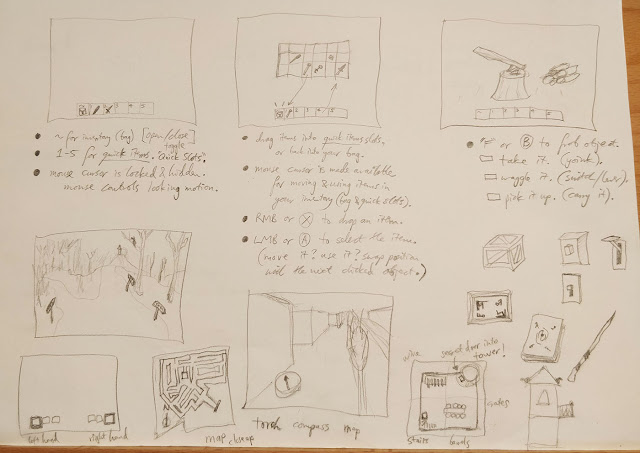 ~ for inventory (bag) [open/close]
toggle
1-5 for quick items. "Quick slots".
mouse cursor is locked & hidden.
mouse controls looking motion.
drag items into quick items slots.
or back into your bag.
mouse cursor is made available
for moving & using items in
your inventory (bag & quick slots).
RMB or Ⓧ to drop an item.
LMB or Ⓐ to select the item.
(move it? use it? swap position
with the next clicked object.)
or Ⓑ to object.
take it. (yoink).
waggle it. (switch/lever).
pick it up. (carry it).
left hand
right hand
N
map closeup
torch compass map
secret door into
tower!
crates
stairs